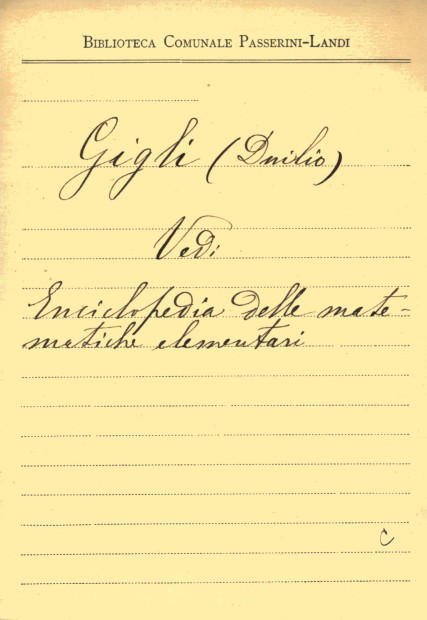 BIBLIOTECA COMUNALE PASSERINI-LANDI
Gigli (Duilio)
Vedi
Enciclopedia delle mate-
matiche elementari
C